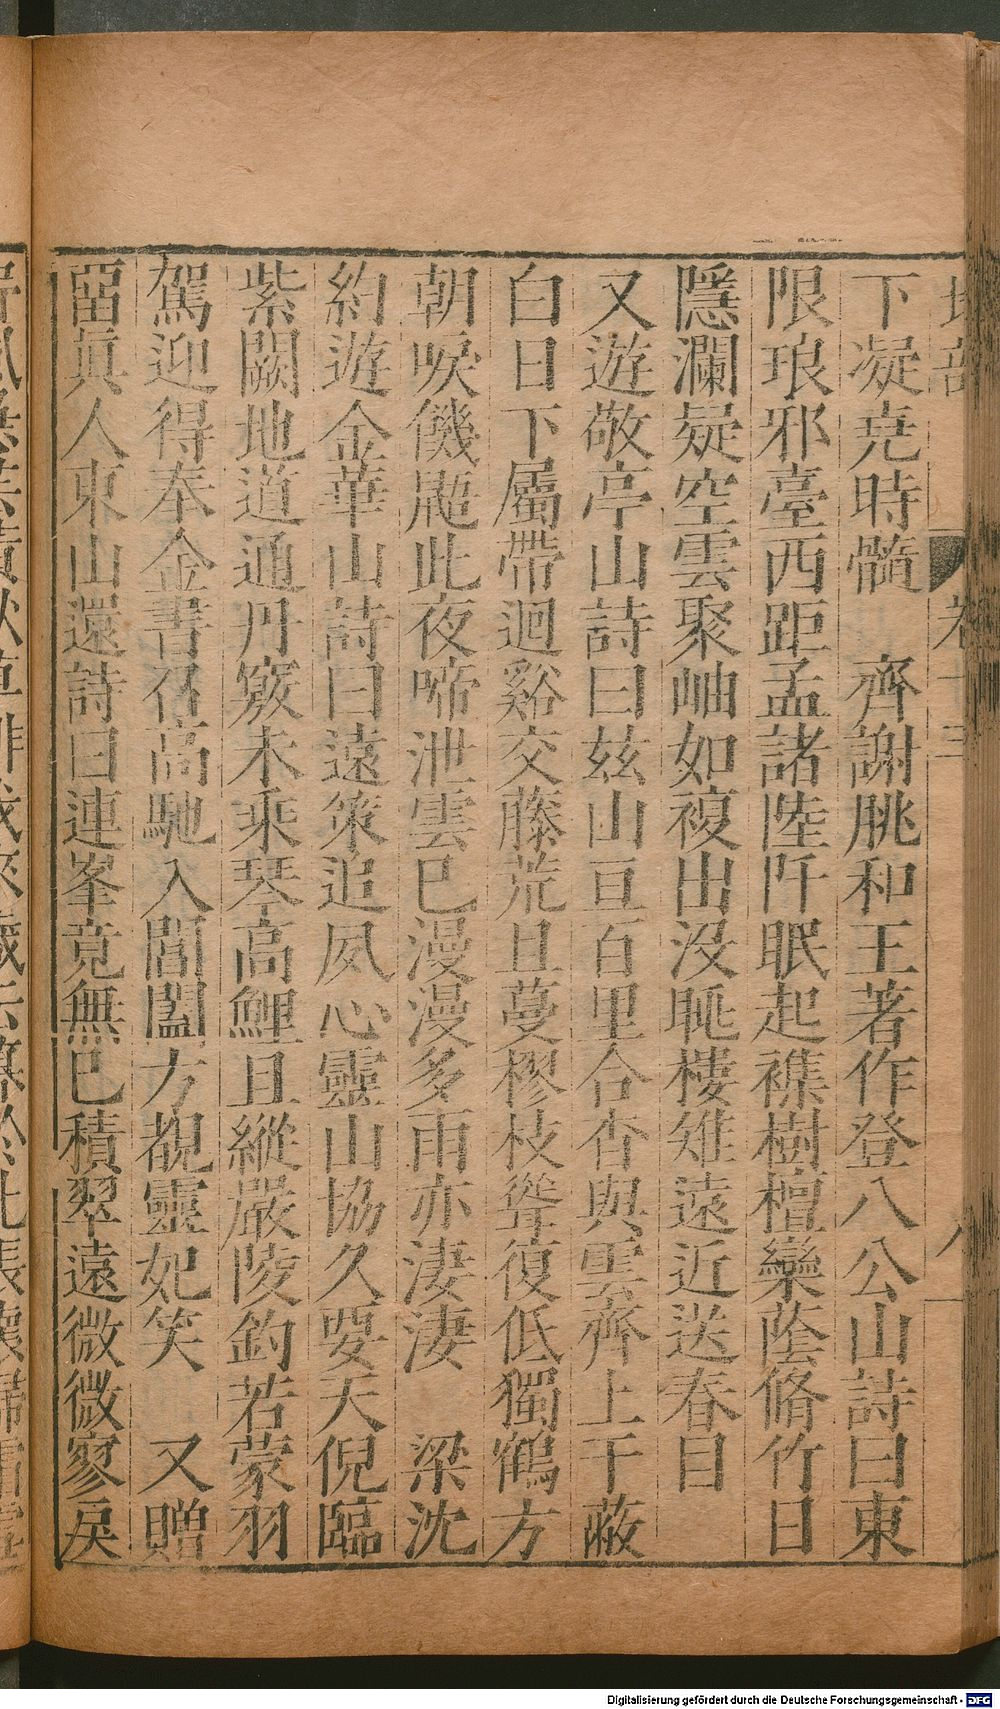 下凝堯時髓　齊謝朓和王著作登八公山詩曰東
限琅邪臺西距孟諸陸阡眠起襍樹檀欒蔭脩竹日
隱瀾疑空雲聚岫如複出没眺樓雉遠近送春目
又遊敬亭山詩曰玆山亘百里合沓與雲齊上干蔽
白日下屬帶迴谿交藤荒且蔓樛枝聳復低獨鶴方
朝唳饑鼯此夜啼泄雲巳漫漫多雨亦淒淒　梁沈
約遊金華山詩曰遠策追夙心靈山協久要天倪臨
紫闕地道通丹竅未乘琴高鯉且縱嚴陵釣若蒙羽
駕迎得奉金書召高馳入閶闔方覩靈妃笑　又贈
留眞人東山還詩曰連峯竟無巳積翠遠微微寥戾
Digitalisierung gefördert durch die Deutsche Forschungsgemeinschaft - DFG